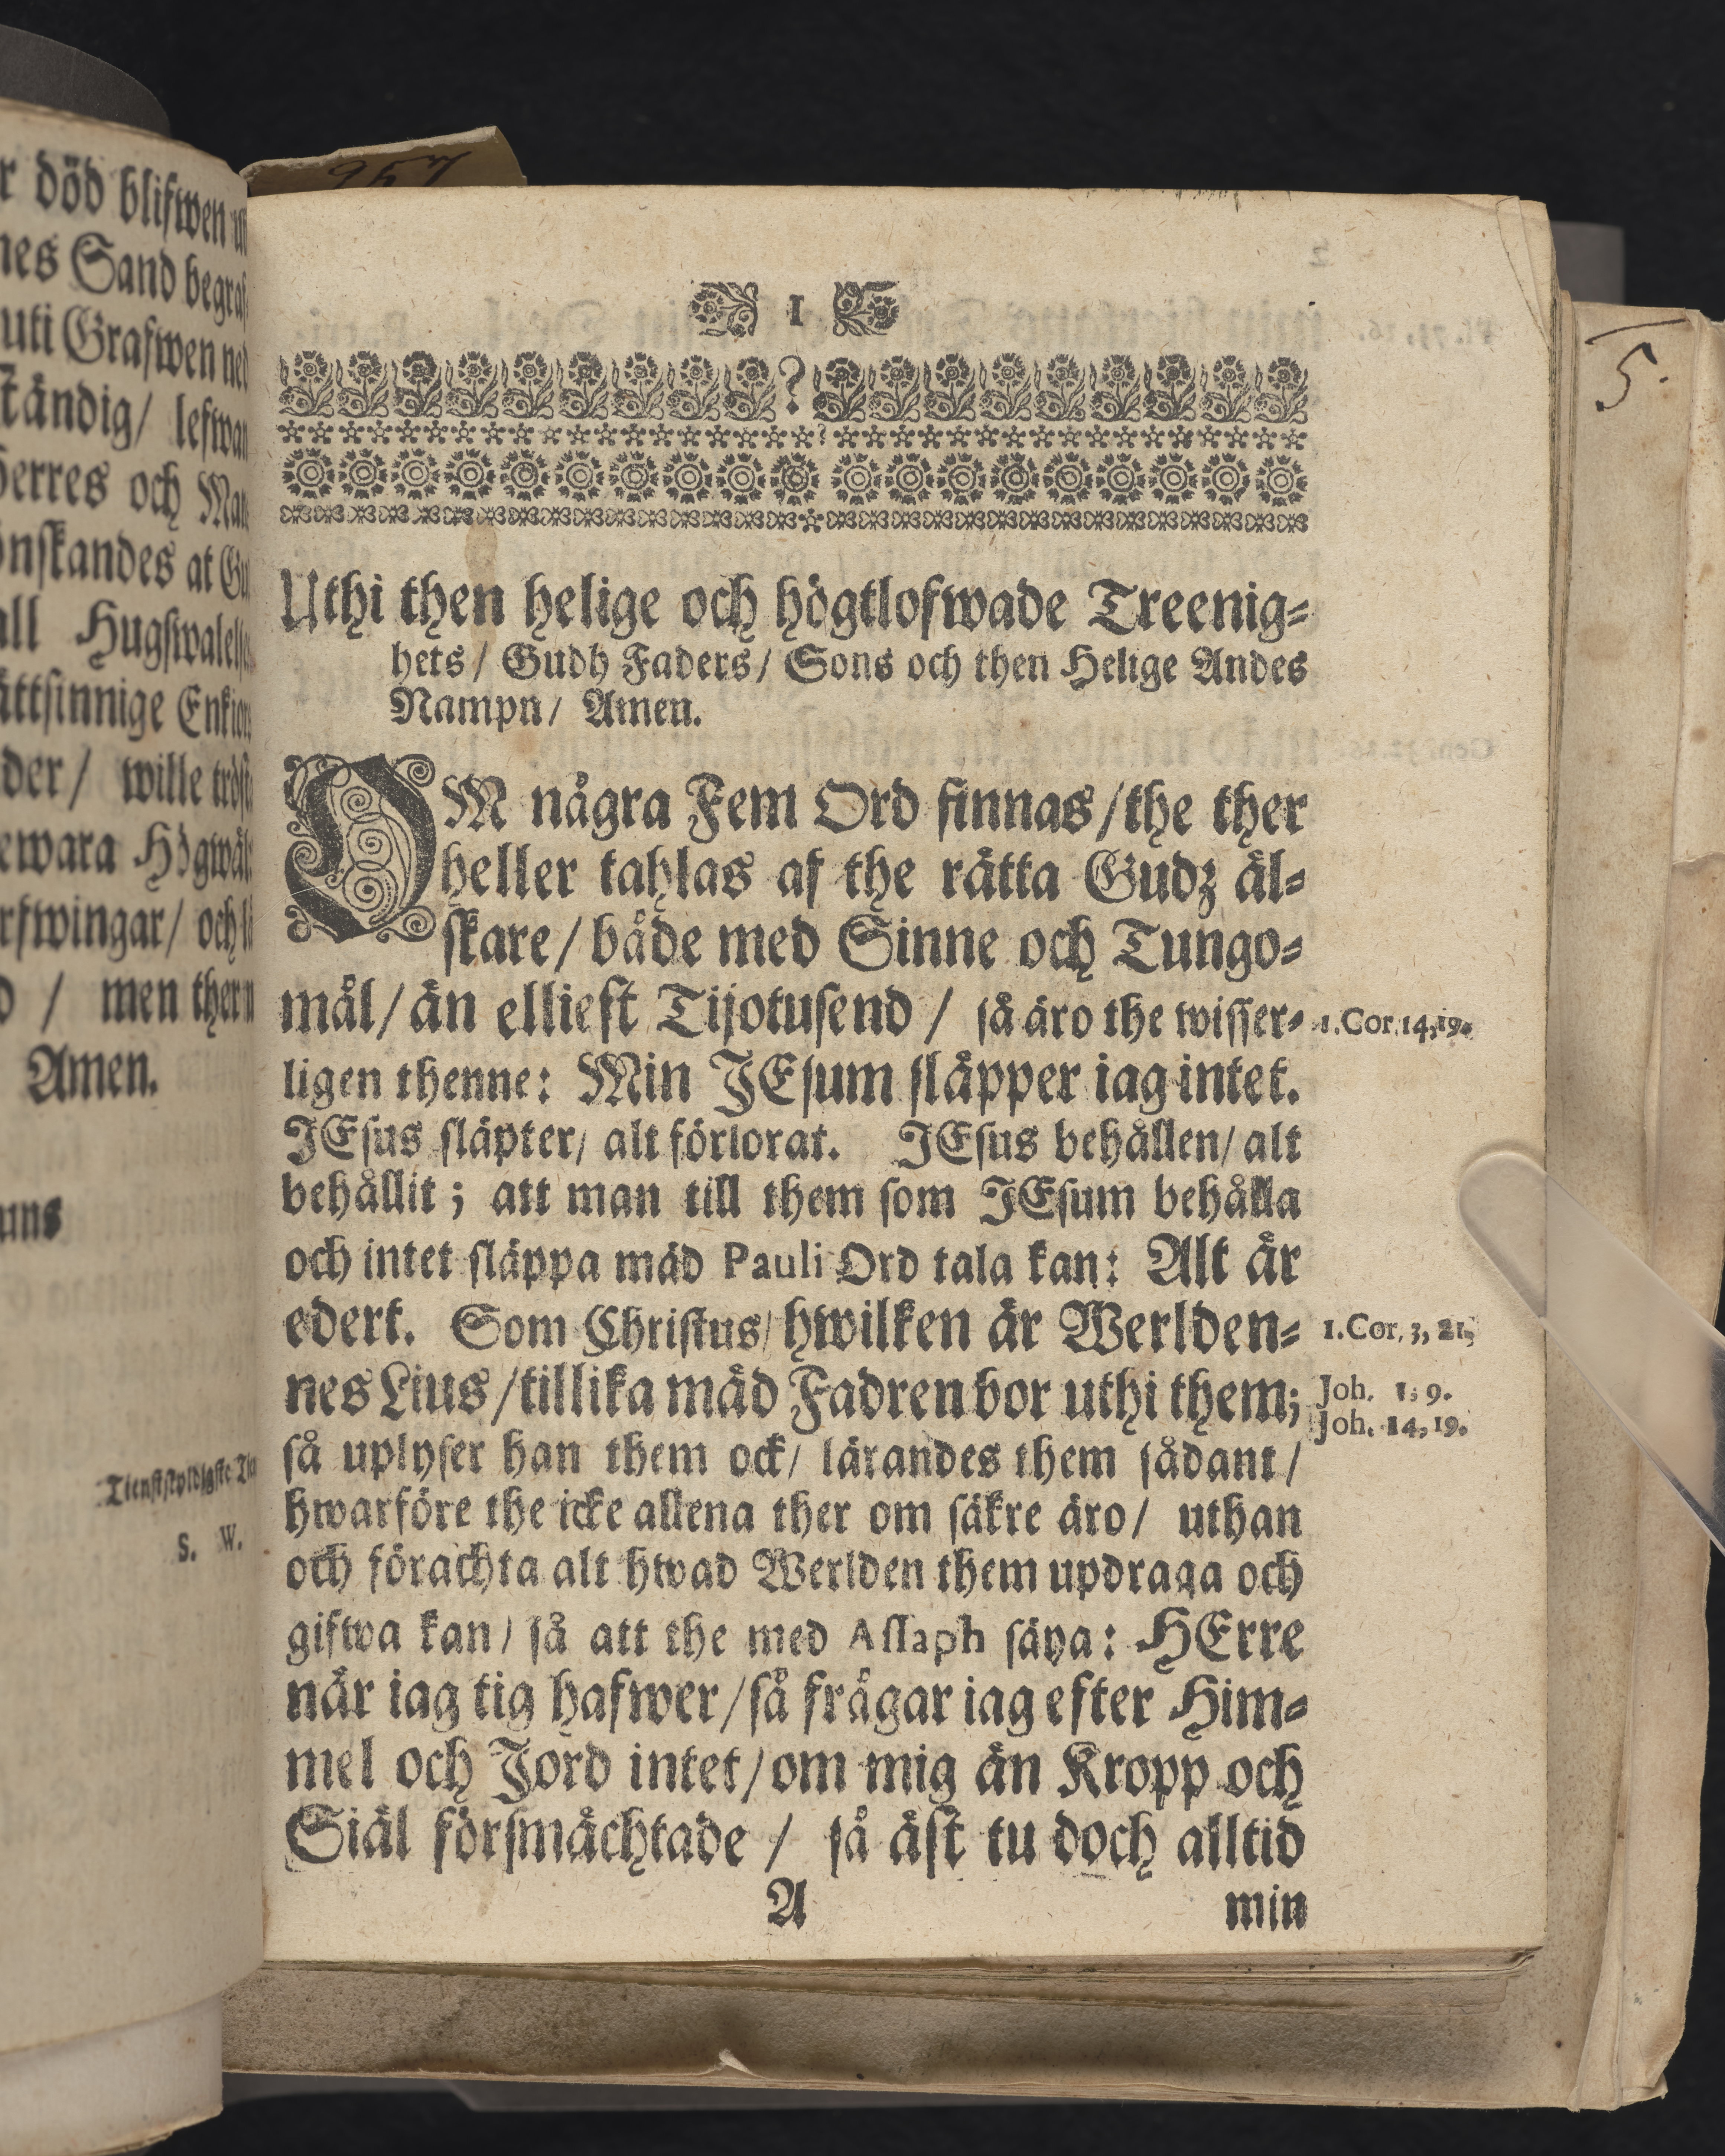 r död blifwen
nes Sand
uti Grafwen
ständig/
Herres och
önskandes at
all
ättsinnige
der/ wille
ewara
rfwingar/
/ men
Amen.
S. W.
1
5.
Uthi then helige och högtlofwade Treenig-
hets/ Gudh Faders/ Sons och then Helige Andes
Nampn/ Amen.
OM några Fem Ord finnas/ the ther
heller tahlas af the rätta Gudz äl-
skare/ både med Sinne och Tungo-
mål/ än elliest Tijotusend / så äro the wisser- 1. Cor. 14, 19.
ligen thenne: Min JEsum släpper iag intet.
JEsus släpter/ alt förlorat. JEsus behållen/ alt
behållit; att man till them som JEsum behålla
och intet släppa mäd Pauli Ord tala kan: Alt är
edert. Som Christus/ hwilken är Werlden- 1. Cor. 3, 21.
nes Lius/ tillika mäd Fadren bor uthi them; Joh. 1, 9.
Joh. 14, 19.
så uplyser han them ock/ lärandes them sådant/
hwarföre the icke allena ther om säkre äro/ uthan
och förachta alt hwad Werlden them updraga och
gifwa kan/ så att the med Assaph säya: HErre
när iag tig hafwer/ så frågar iag efter Him-
mel och Jord intet/ om mig än Kropp och
Siäl försmächtade / så äst tu doch alltid
A min